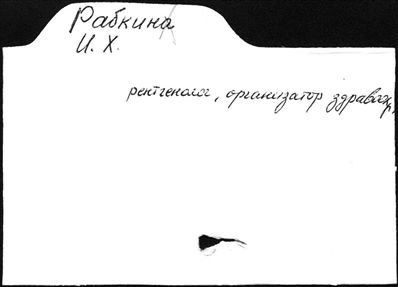 Рабкина
И. Х.
рентгенолог, организатор здравоохр.